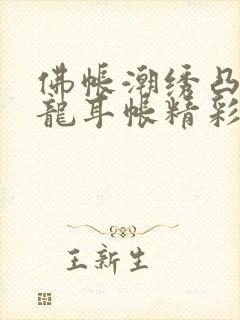 佛帐潮绣凸
龍耳帐精彩
王新生